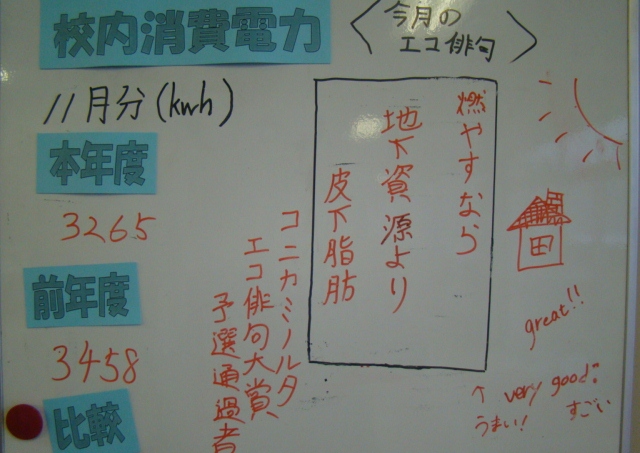 校内消費電力
11月分(kwh)
本年度
3265
前年度
3458
比較
〈今月の
エコ俳句〉
燃やすなら
地下資源より
皮下脂肪
コニカミノルタ
エコ俳句大賞
予選通過者
great!!
↑ very good!!
うまい! すごい